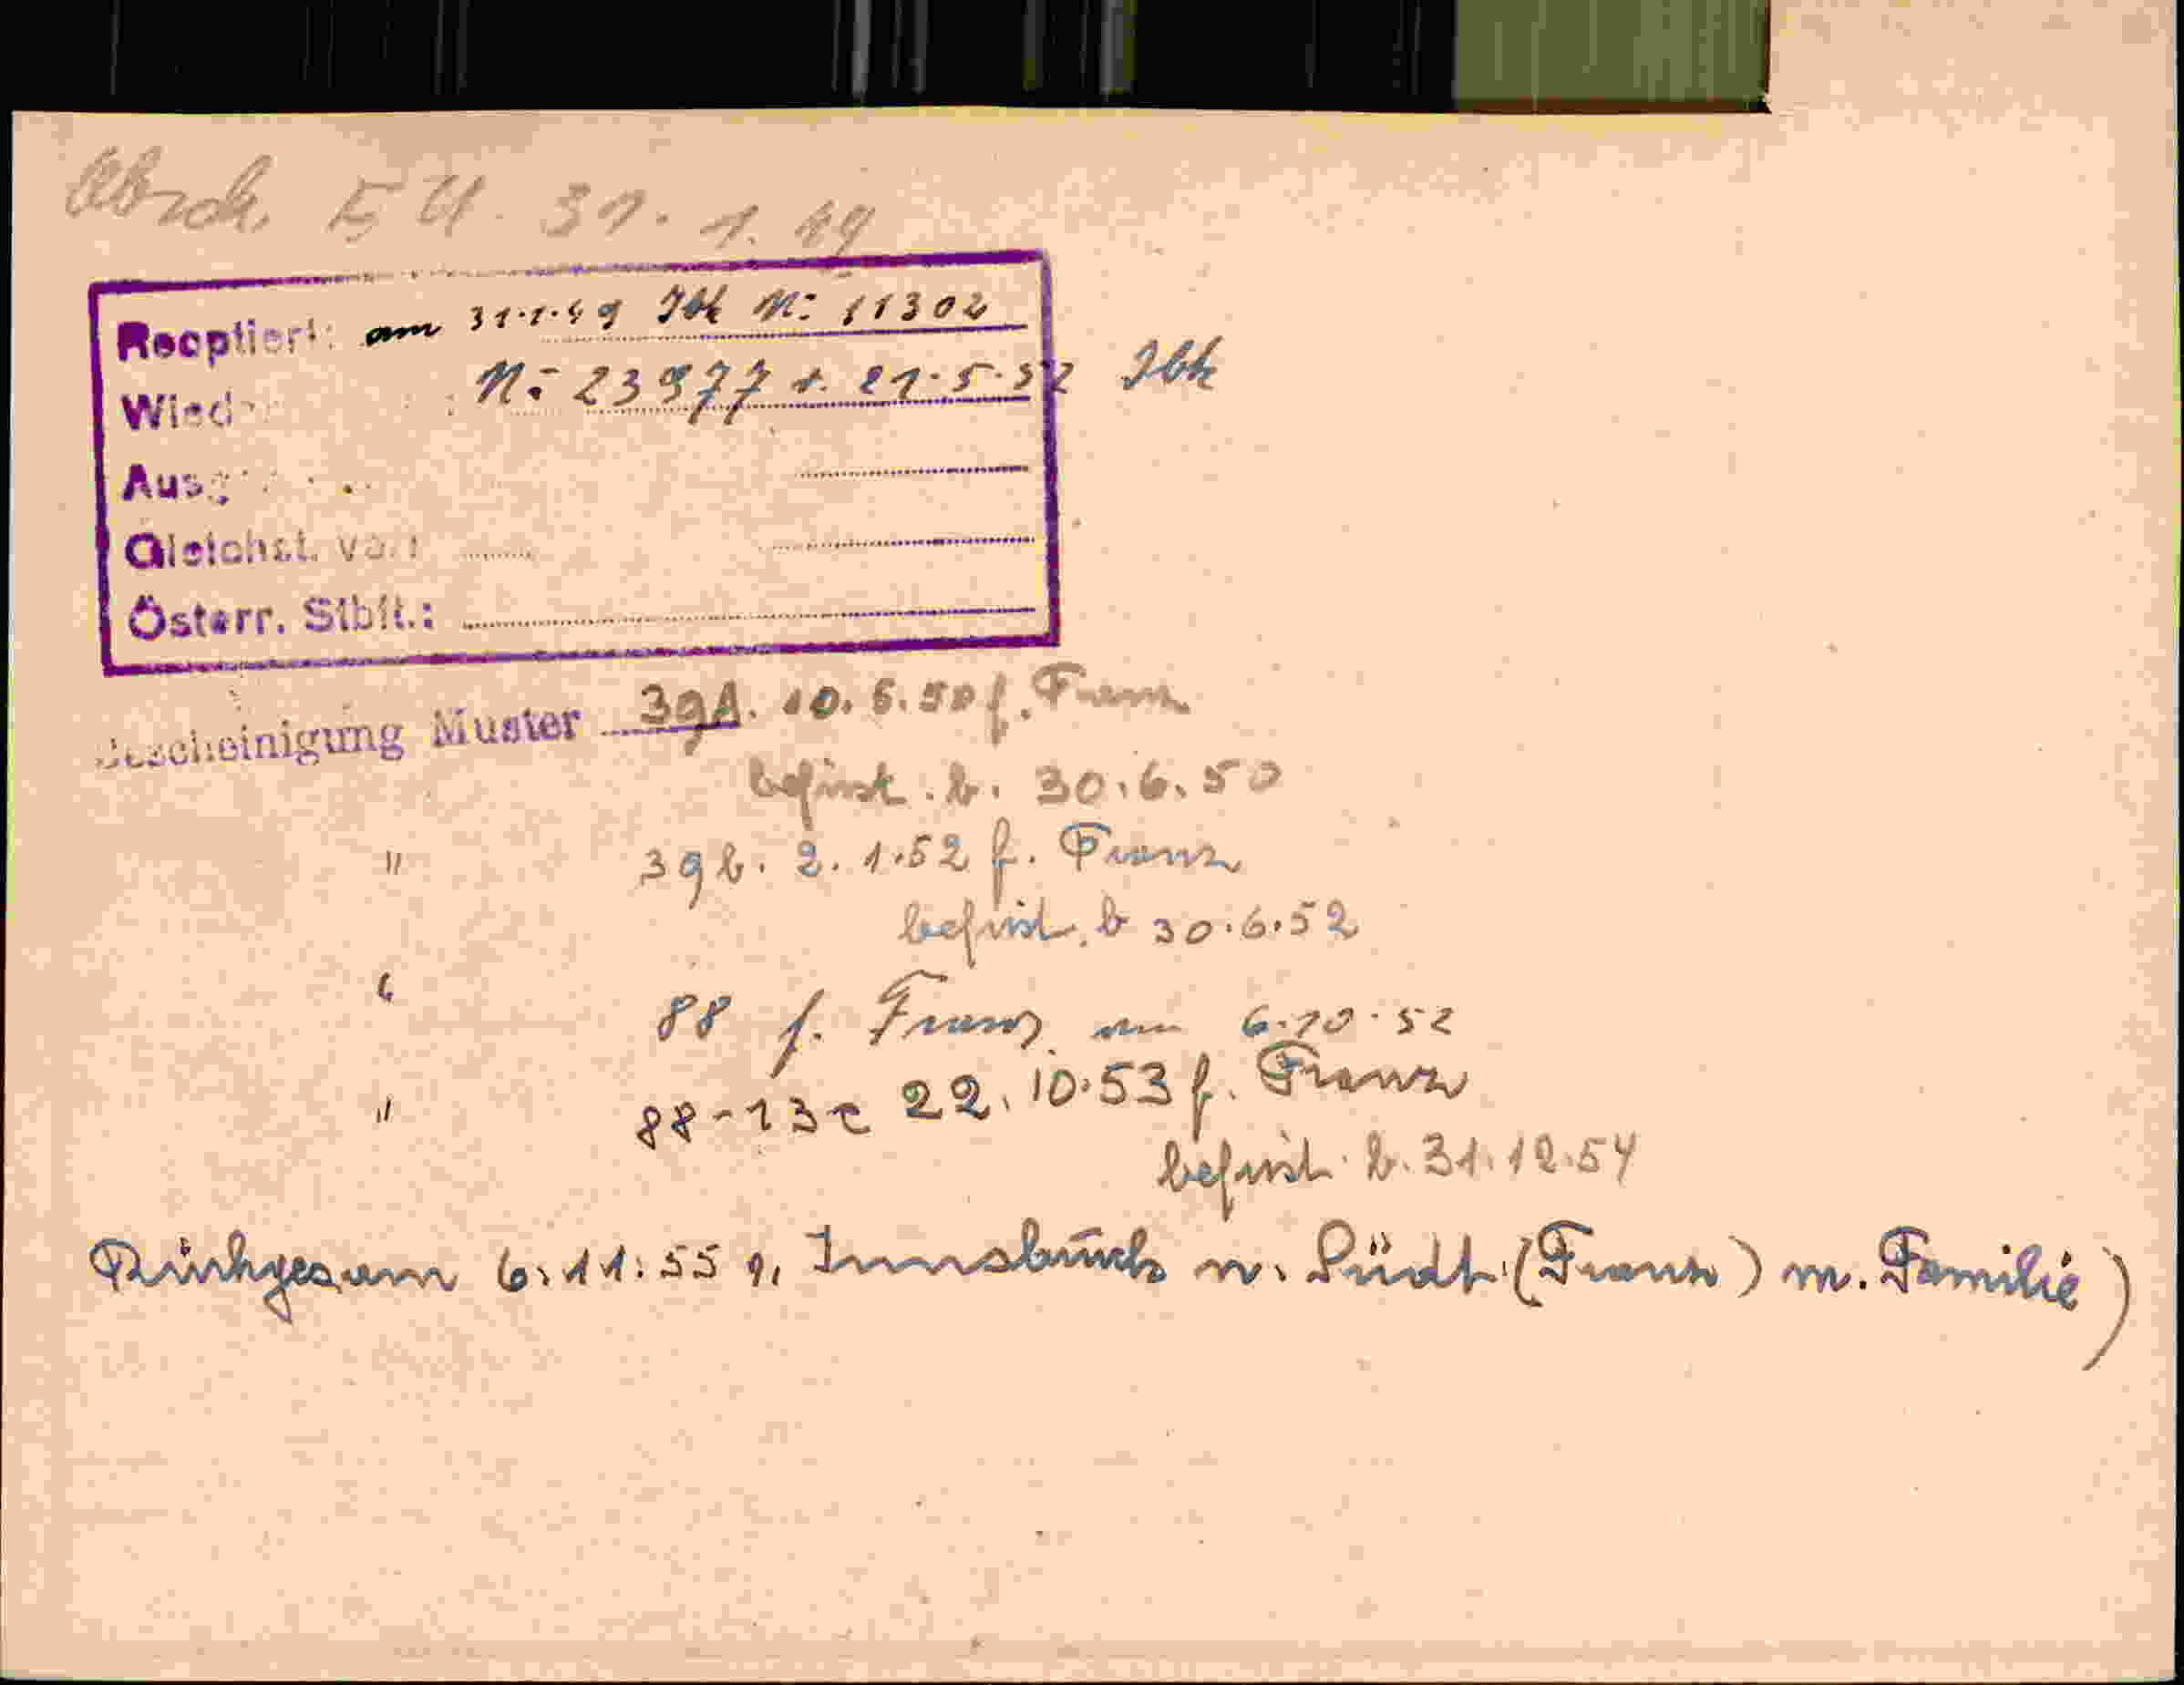 Absch. EU. 31. 1. 49
Reoptiert: am 31.1.49 Ibk Nr. 11302
Wied Nr. 23977 v. 21.5.52 Ibk
Ausg
Gleichst. von
Österr. Stbft.:
Bescheinigung Muster 39A. 10. 5. 50 f. Franz
befrist. b. 30.6.50
" 39b. 2. 1.52 f. Franz
befrist. b 30.6.52
" 88 f. Franz am 6.10.52
" 88-13c 22.10.53 f. Franz
befrist. b. 31.12.54
Rückges. am 6.11.55 v. Innsbruck n. Südt. (Franz) m. Familie)